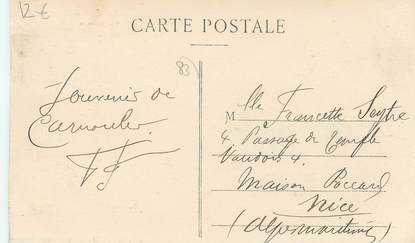 12 €
CARTE POSTALE
83
Souvenir de
Carnoules.
Mlle Francette Seytre
4 Passage du Temple
Vaudois 4.
Maison Roccard
Nice
(Alpes maritimes)